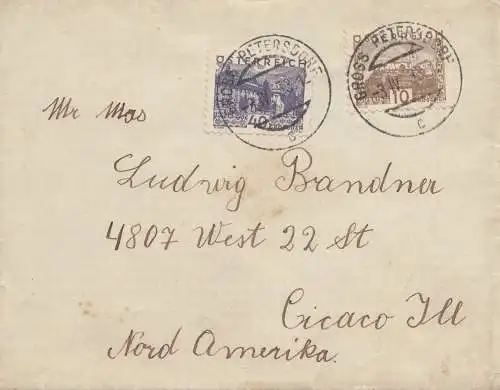 GROSS PETERSDORF
ÖSTERREICH
40
c
GROSS PETERSDORF
10
c
Mr Mas
Ludwig Bandner
4807 West 22 St
Cicaco Ill
Nord Amerika.